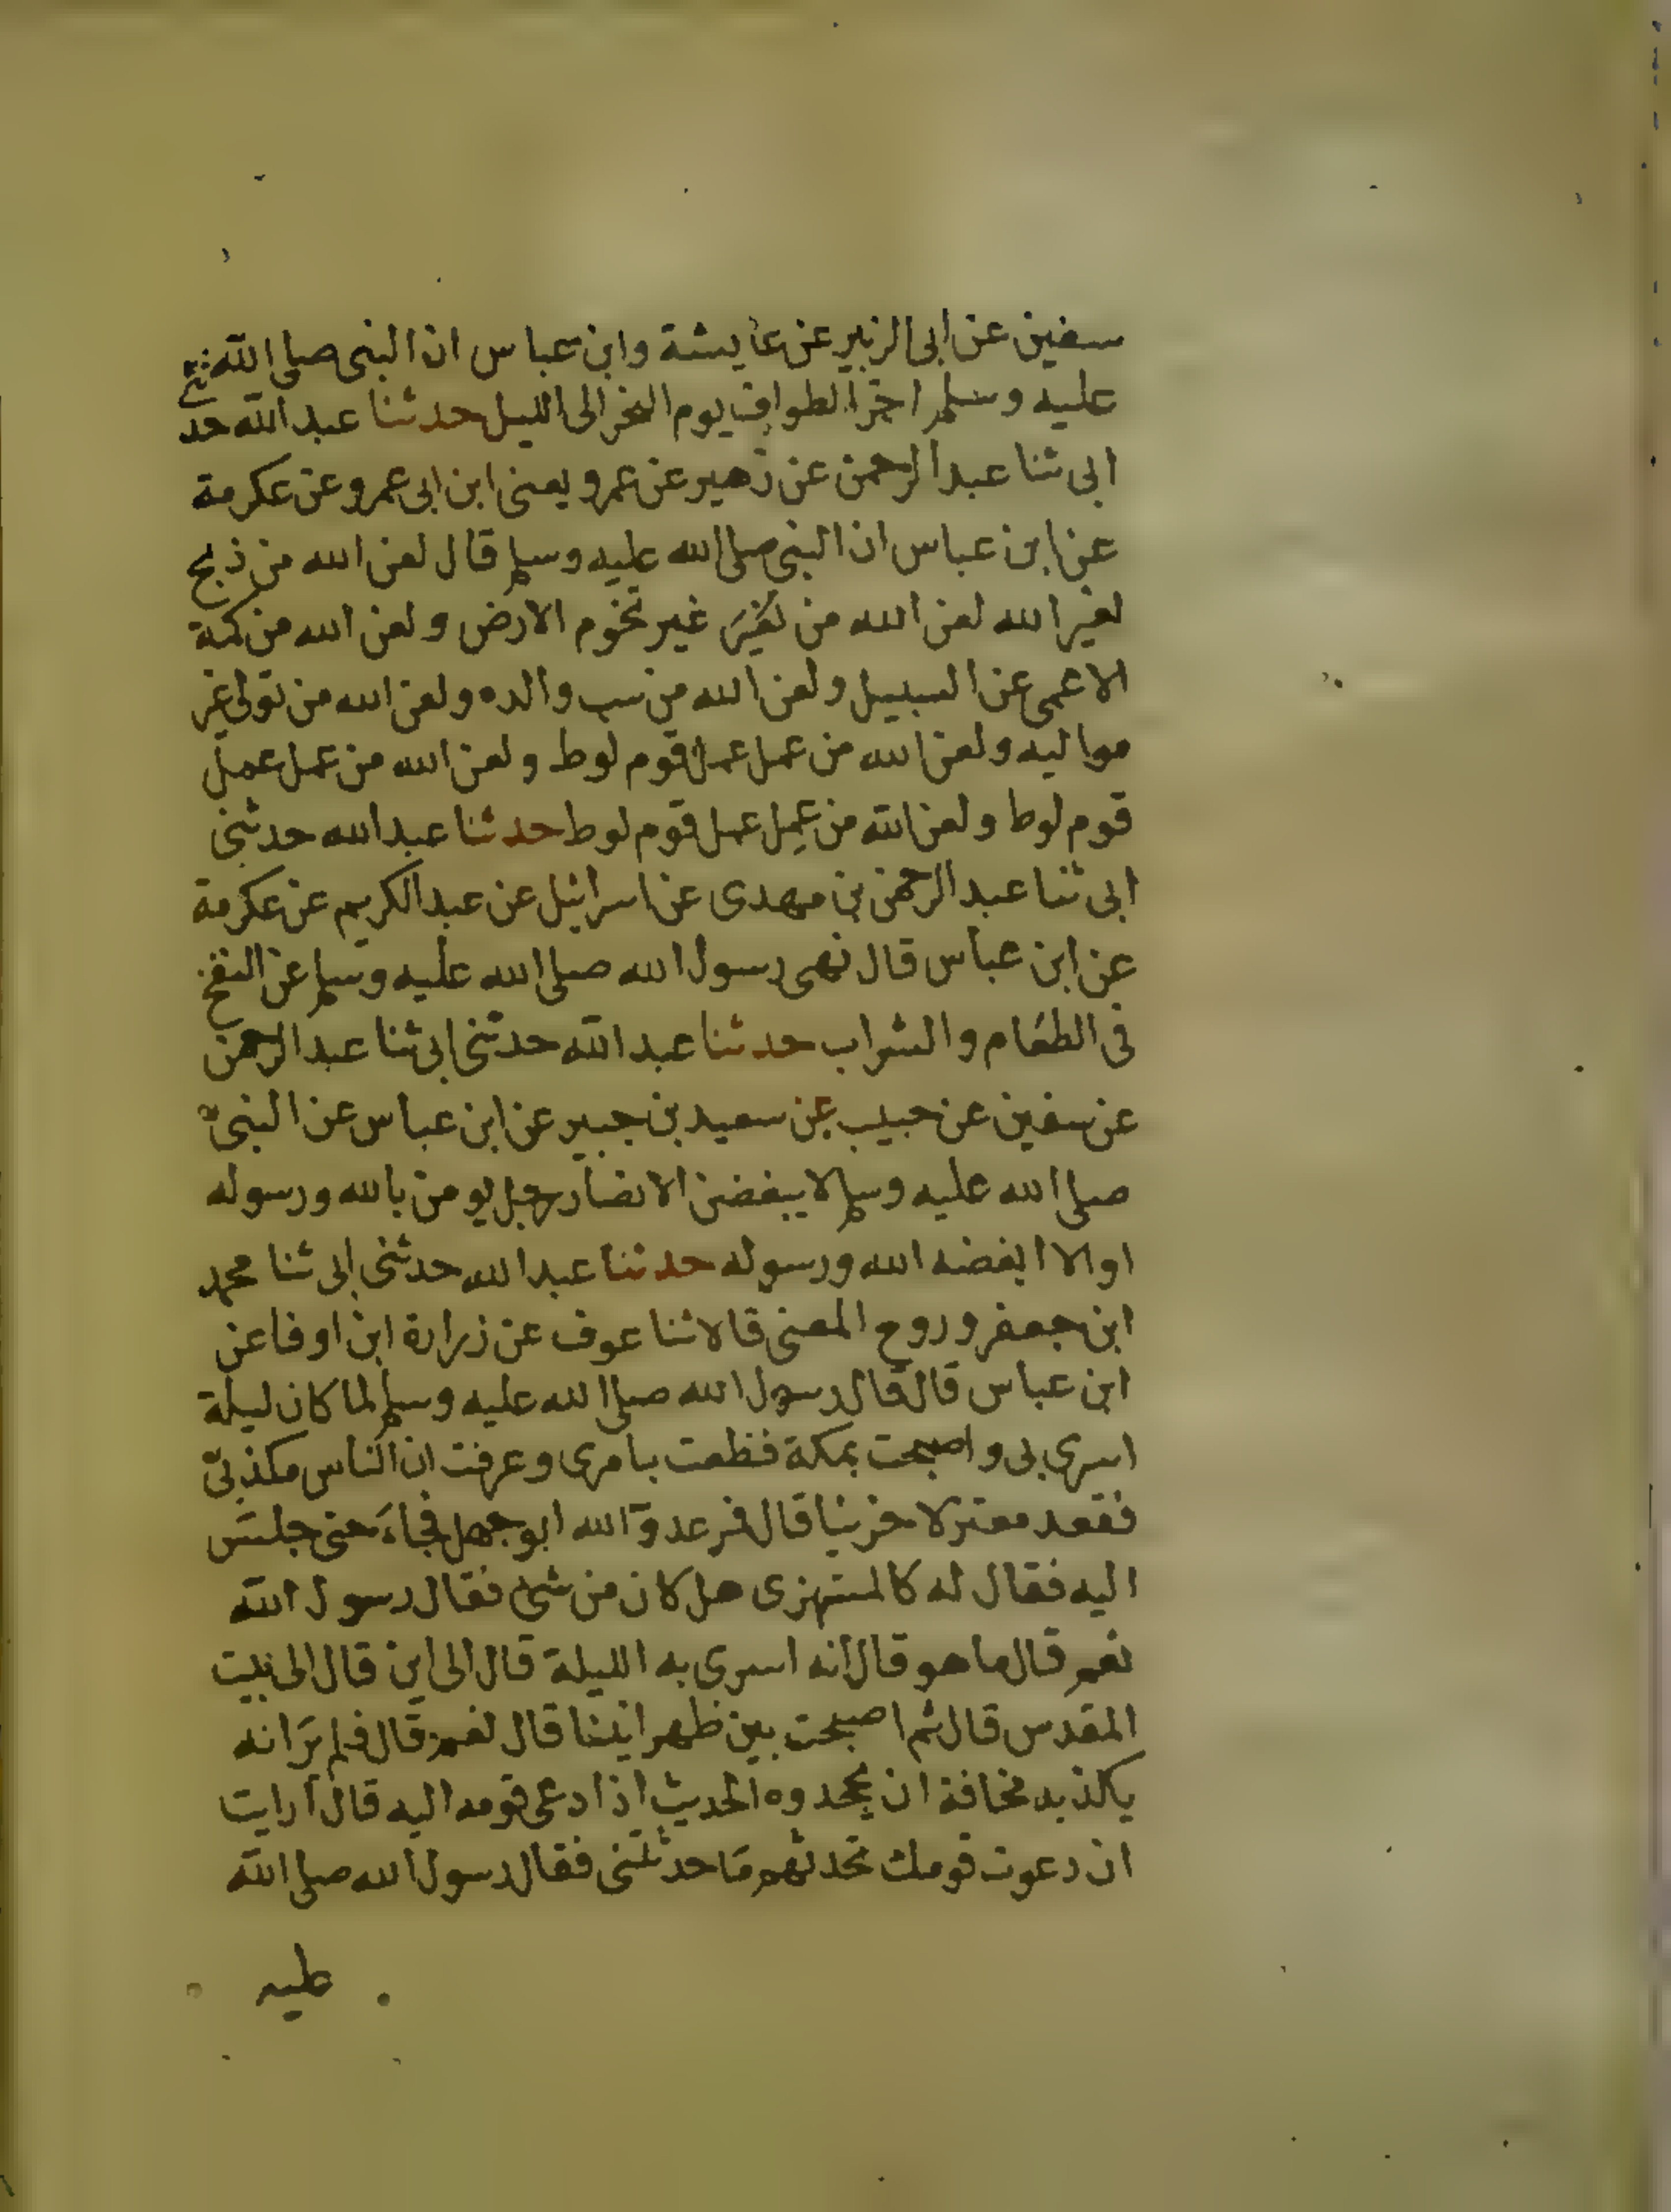 سفين عن ابى الزبير عن عايشة وابن عباس ان النبى صلى الله
عليه وسلم اخر الطواف يوم النحر الى الليل حدثنا عبد الله حد
ابى ثنا عبد الرحمن عن زهير عن عمرو يعنى ابن ابى عمرو عن عكرمة
عن ابن عباس ان النبى صلى الله عليه وسلم قال لعن الله من ذبح
لغير الله لعن الله من غير تخوم الارض ولعن الله من كمة
الاعمى عن السبيل ولعن الله من سب والده ولعن الله من تولى غير
مواليه ولعن الله من عمل عمل قوم لوط ولعن الله من عمل عمل
قوم لوط ولعن الله من عمِل عمل قوم لوط حدثنا عبد الله حدثنى
ابى ثنا عبد الرحمن بن مهدى عن اسرائيل عن عبد الكريم عن عكرمة
عن ابن عباس قال نهى رسول الله صلى الله عليه وسلم عن النفخ
فى الطعَام والشراب حدثنا عبد الله حدثنى ابى ثنا عبد الرحمن
عن سفين عن حبيب عن سعيد بن جبير عن ابن عباس عن النبى
صلى الله عليه وسلم لا يبغضن الانصار رجل يومن بالله ورسوله
او الا ابغضه الله ورسوله حدثنا عبد الله حدثنى ابى ثنا محمد
ابن جعفر وروح المعنى قالا ثنا عوف عن زرارة ابن اوفا عن
ابن عباس قال قال رسول الله صلى الله عليه وسلم لما كان ليلة
اسرى بى واصبحت بمكة فظعت بامرى وعرفت ان الناس مكذبىّ
فقعد معتزلا حزينا قال فمر عدو الله ابو جهل فجاءَ حتى جلسَ
اليه فقال له كالمستهزى هل كان من شئ فقال رسول الله
نعم قال ما هو قال انه اسرى به الليلة قال الى اين قال الى بيت
المقدس قال ثم اصبحت بين ظهرانينا قال نعم قال فلم يَرَ انه
يكذبه مخافة ان يجحدوه الحديث اذا دعى قومه اليه قال ارايت
ان دعوت قومك تحدثهم مَا حدثتنى فقال رسول الله صلى الله
عليه